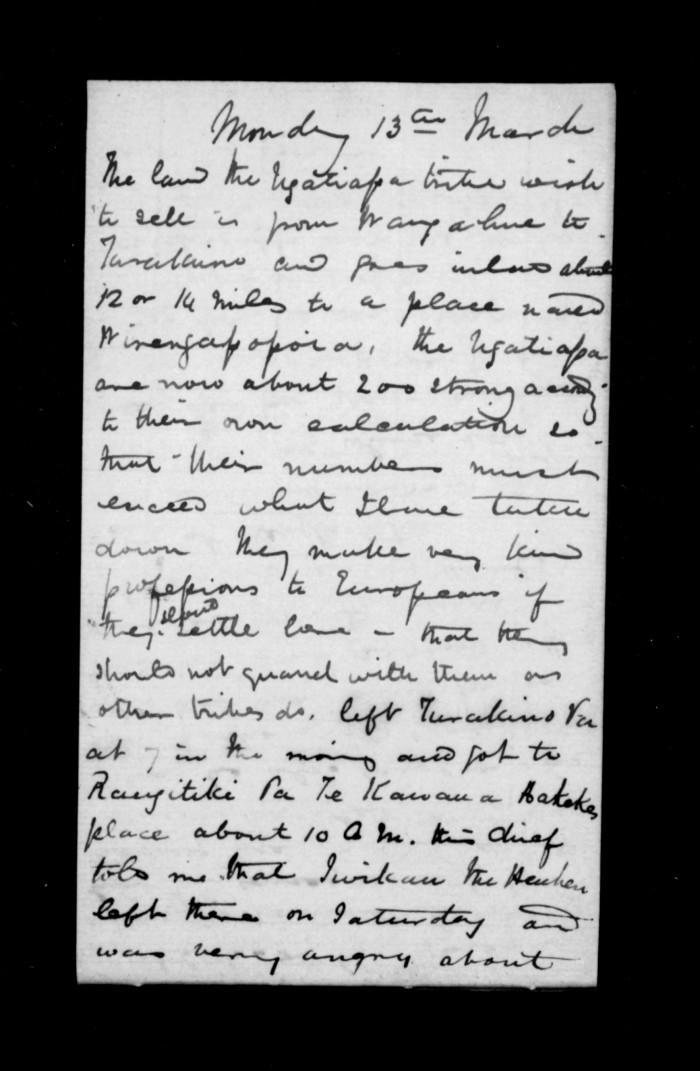 Monday 13th March
The land the Ngatiapa tribe wish
to sell is from Wangahue to
Turakino and goes inland about
12 or 14 miles to a place named
Wirengapopoia, the Ngatiapa
are now about 200 strong accordg
to their own calculation so
that their numbers must
exceed what I have taken
down they make very kind
professions to Europeans if
they should settle here – that they
should not quarrel with them as
other tribes do. left Turakino Pa
at 7 in the morning and got to
Rangitiki Pa Te Kawana Hakekes
place about 10 A M. this chief
told me that Iwikau the Heuheu
left there on Saturday and
was very angry about